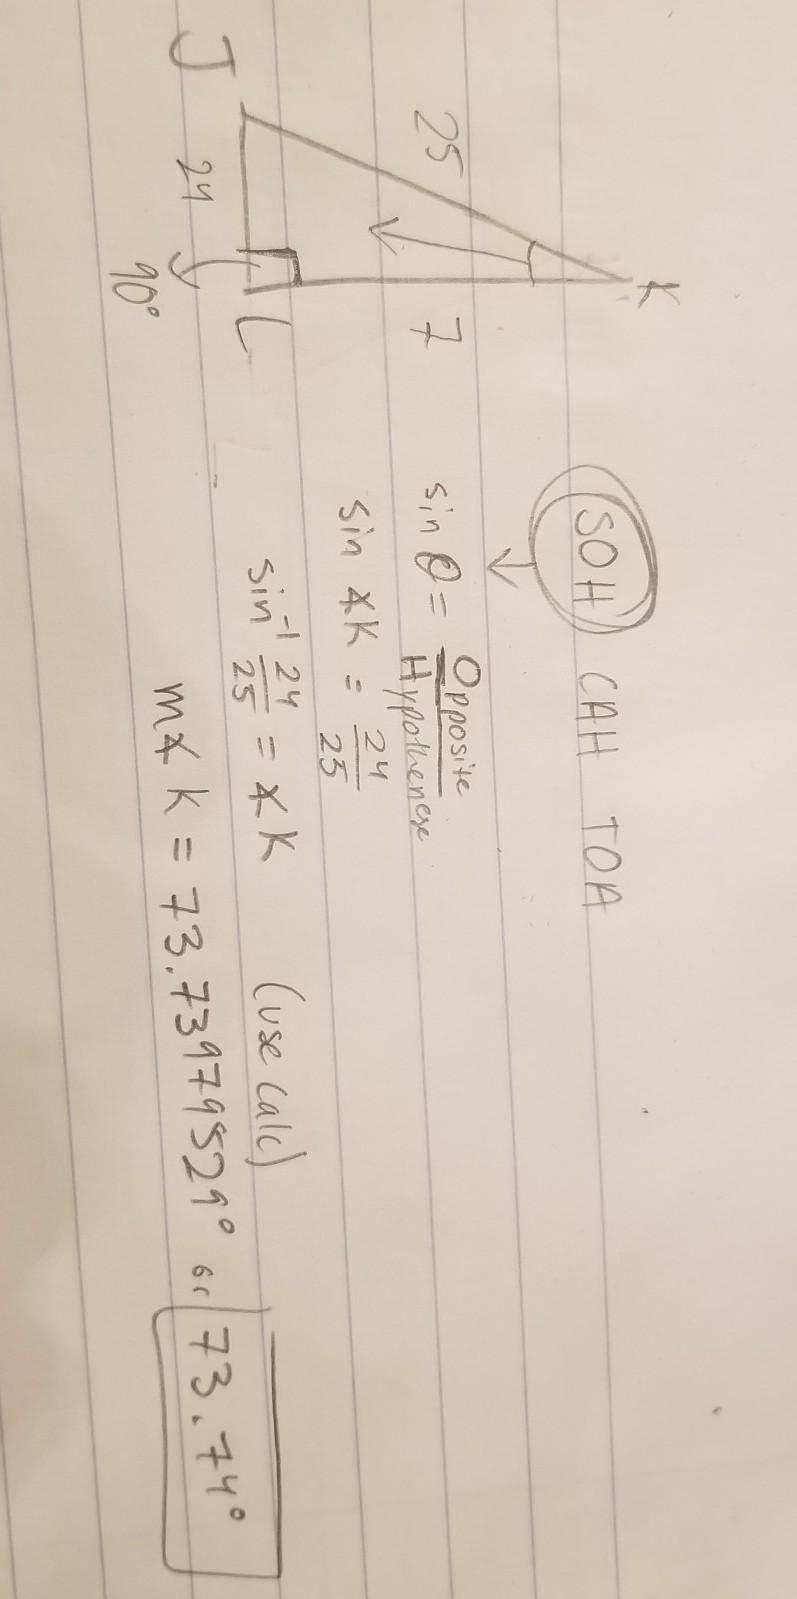 K
25
7
J
24
L
90°
SOH CAH TOA
sin θ = Opposite / Hypothenese
sin ∡K = 24/25
sin⁻¹ 24/25 = ∡K (use calc)
m∡K = 73.73979529° or 73.74°